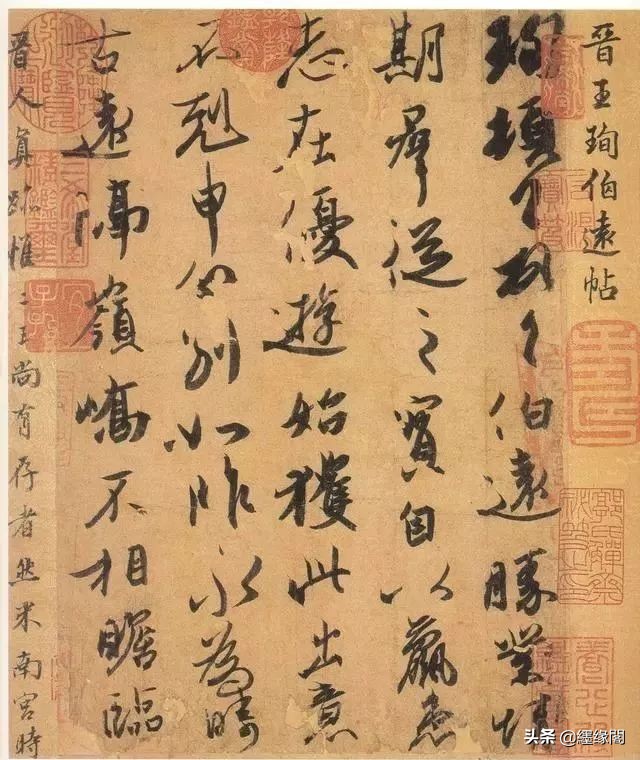 晋王珣伯遠帖
珣頓首頓首伯遠勝業情
期羣從之寳自以羸患
志在優遊始獲此出意
不剋申分别如昨永為疇
古遠隔嶺嶠不相瞻臨
晋人真蹟惟二王尚有存者然米南宮時
头条@纆缘閣